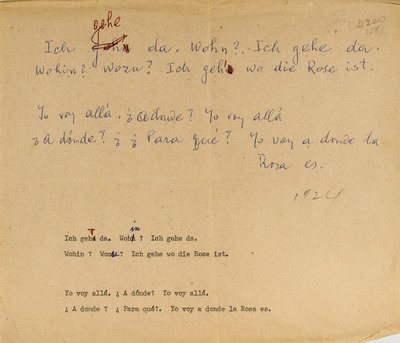 gehe
D200
Ich da. Wohn? Ich gehe da.
Wohin? Wozu? Ich geh wo die Rose ist.
Yo voy allá. ¿Adonde? Yo voy allá
¿A dónde? ¿ ¿ Para qué? Yo voy a donde la
Rosa es.
1924
in
Ich gehe da. Woh ? Ich gehe da.
Wohin ? Wozu? Ich gehe wo die Rose ist.
Yo voy allá. ¿ A dónde? Yo voy allá.
¿ A donde ? ¿ Para qué?. Yo voy a donde la Rosa es.